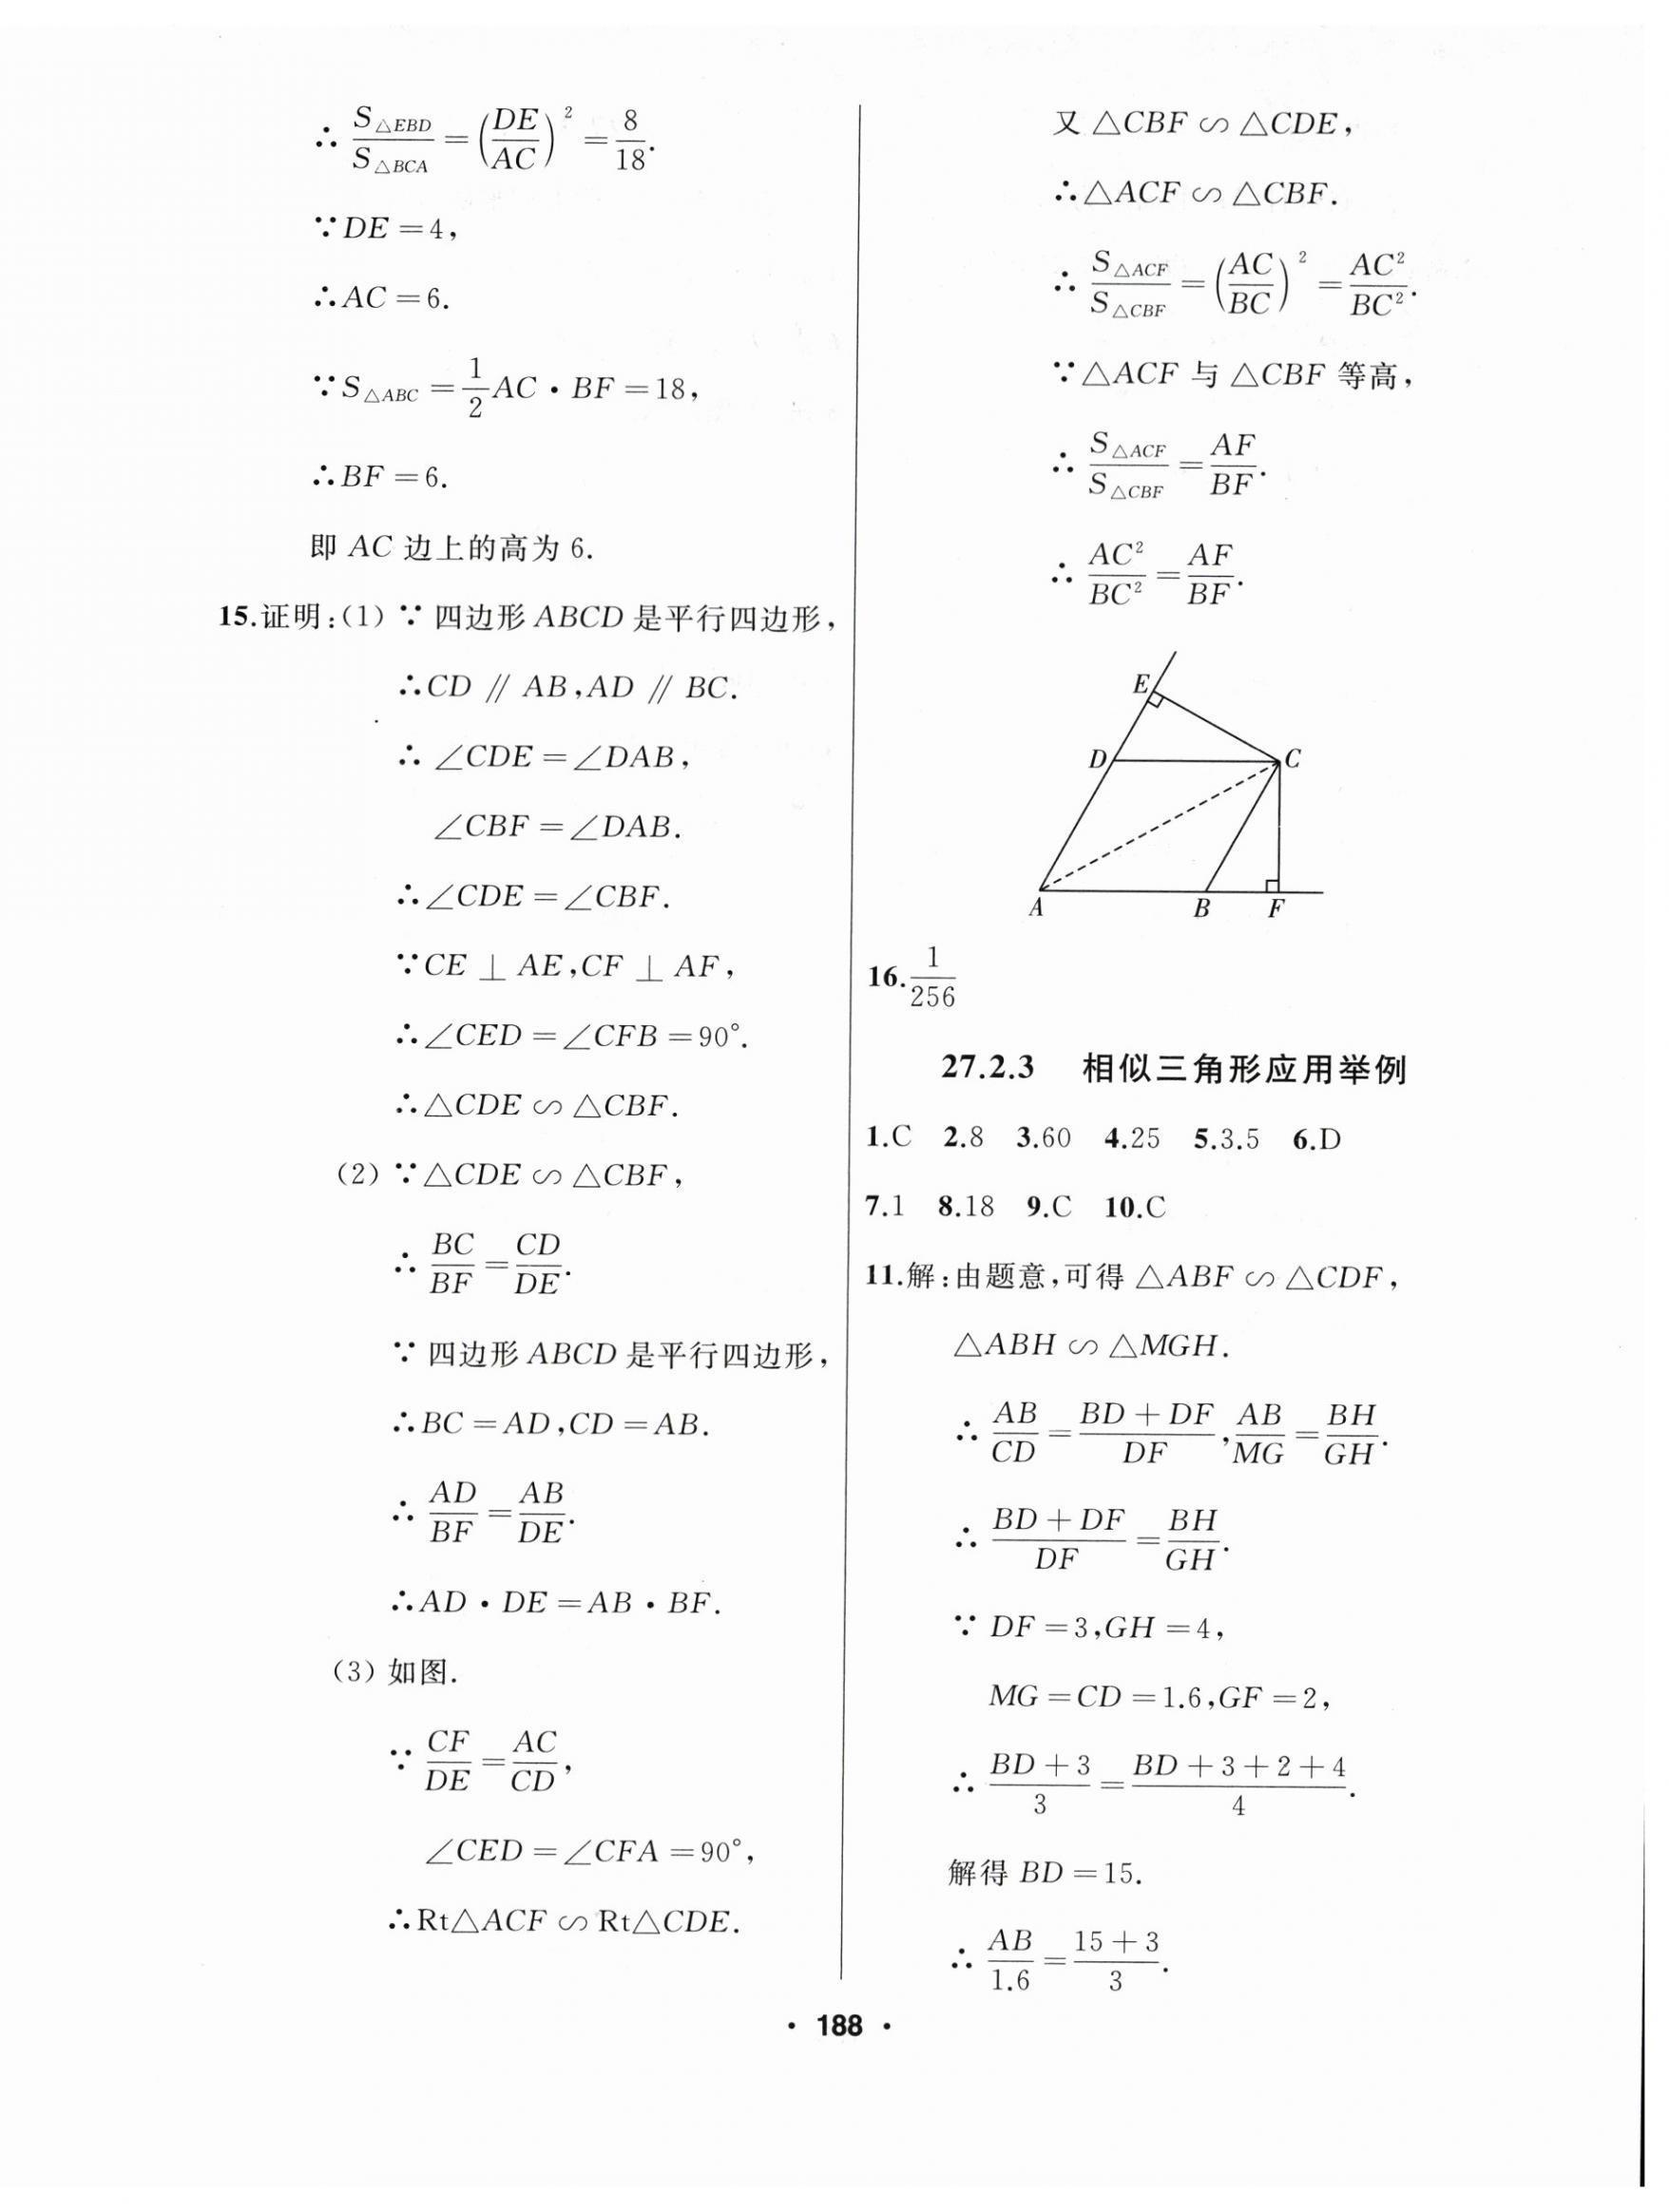 ∴ S△EBD/S△BCA=(DE/AC)²=8/18.
∵DE=4,
∴AC=6.
∵S△ABC=1/2AC·BF=18,
∴BF=6.
即 AC 边上的高为 6.
15.证明:(1) ∵ 四边形 ABCD 是平行四边形,
∴CD // AB,AD // BC.
∴ ∠CDE=∠DAB,
∠CBF=∠DAB.
∴∠CDE=∠CBF.
∵CE ⊥ AE,CF ⊥ AF,
∴∠CED=∠CFB=90°.
∴△CDE ∽ △CBF.
(2) ∵△CDE ∽ △CBF,
∴ BC/BF=CD/DE.
∵ 四边形 ABCD 是平行四边形,
∴BC=AD,CD=AB.
∴ AD/BF=AB/DE.
∴AD·DE=AB·BF.
(3) 如图.
∵ CF/DE=AC/CD,
∠CED=∠CFA=90°,
∴Rt△ACF ∽ Rt△CDE.
又 △CBF ∽ △CDE,
∴△ACF ∽ △CBF.
∴ S△ACF/S△CBF=(AC/BC)²=AC²/BC².
∵△ACF 与 △CBF 等高,
∴ S△ACF/S△CBF=AF/BF.
∴ AC²/BC²=AF/BF.
E
D C
A B F
16.1/256
27.2.3 相似三角形应用举例
1.C 2.8 3.60 4.25 5.3.5 6.D
7.1 8.18 9.C 10.C
11.解:由题意,可得 △ABF ∽ △CDF,
△ABH ∽ △MGH.
∴ AB/CD=(BD+DF)/DF,AB/MG=BH/GH.
∴ (BD+DF)/DF=BH/GH.
∵ DF=3,GH=4,
MG=CD=1.6,GF=2,
∴ (BD+3)/3=(BD+3+2+4)/4.
解得 BD=15.
∴ AB/1.6=(15+3)/3.
· 188 ·